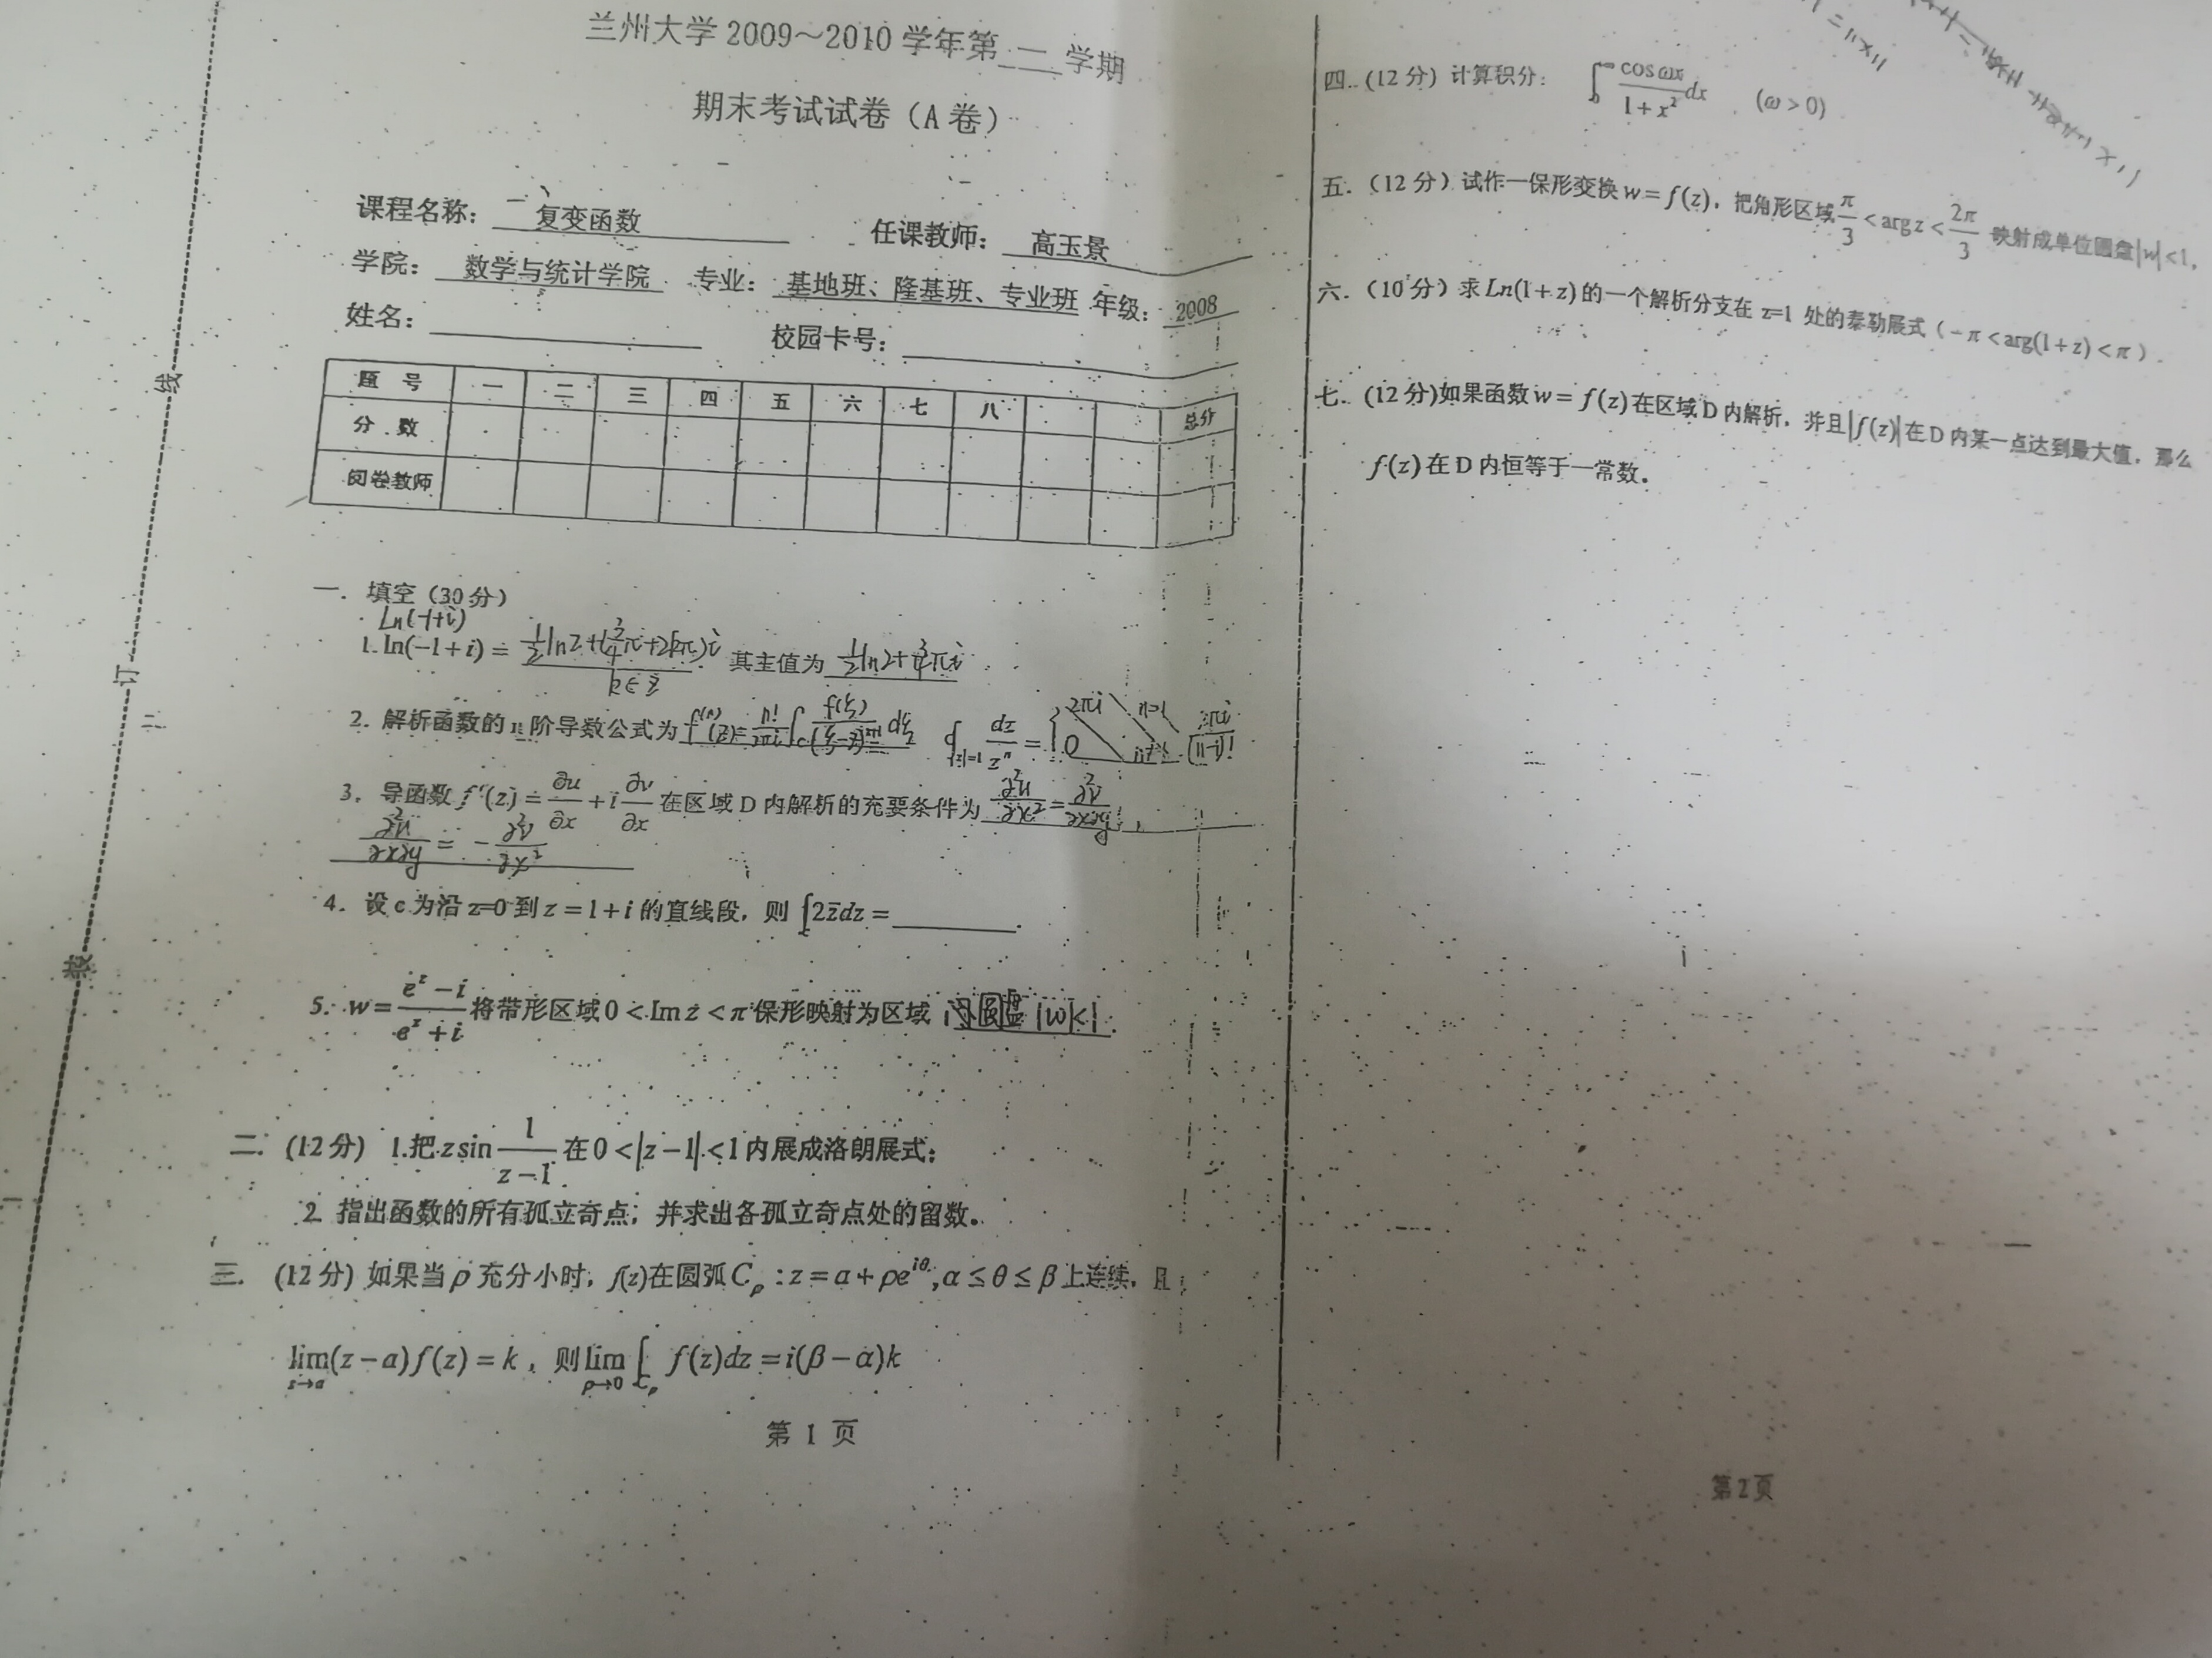 兰州大学 2009～2010 学年第 一 学期
期末考试试卷（A 卷）
课程名称： 复变函数 任课教师： 高玉景
学院： 数学与统计学院 专业： 基地班、隆基班、专业班 年级： 2008
姓名： 校园卡号：
题 号 一 二 三 四 五 六 七 八 总分
分 数
阅卷教师
一． 填空（30 分）
Ln(-1+i)
1. ln(−1+i) = ½ln2+(¾π+2kπ)i 其主值为 ½ln2+¾πi
k∈Z
2. 解析函数的 n 阶导数公式为 f⁽ⁿ⁾(z)= n!/2πi ∫c f(ζ)/(ζ-z)ⁿ⁺¹ dζ ∮|z|=1 dz/zⁿ = { 2πi n=1 0 n≠1
3. 导函数 f'(z) = ∂u/∂x + i ∂v/∂x 在区域 D 内解析的充要条件为 ∂²u/∂x² = ∂²v/∂x∂y ，
∂²u/∂x∂y = -∂²v/∂x²
4. 设 c 为沿 z=0 到 z = 1+i 的直线段，则 ∫c 2z̄dz = .
5. w = (e^z − i)/(e^z + i) 将带形区域 0 < Im z < π 保形映射为区域 |w|<1 .
二. (12 分) 1.把 z sin 1/(z−1) 在 0 < |z −1| < 1 内展成洛朗展式；
2. 指出函数的所有孤立奇点；并求出各孤立奇点处的留数。
三. (12 分) 如果当 ρ 充分小时，f(z)在圆弧 Cρ : z = a + ρe^{iθ}, α ≤ θ ≤ β 上连续，且
lim z→a (z − a) f(z) = k ，则 lim ρ→0 ∫Cρ f(z)dz = i(β − α)k
第 1 页
四. (12 分) 计算积分： ∫₀^{+∞} cos ωx/(1 + x²) dx (ω > 0)
五. (12 分) 试作一保形变换 w = f(z)，把角形区域 π/3 < arg z < 2π/3 映射成单位圆盘|w| <1，
六. (10 分) 求 Ln(1+z) 的一个解析分支在 z=1 处的泰勒展式（ − π < arg(1+ z) < π ）.
七. (12 分)如果函数 w = f(z) 在区域 D 内解析，并且|f(z)| 在 D 内某一点达到最大值，那么
f(z) 在 D 内恒等于一常数。
第 2 页
线
订
装